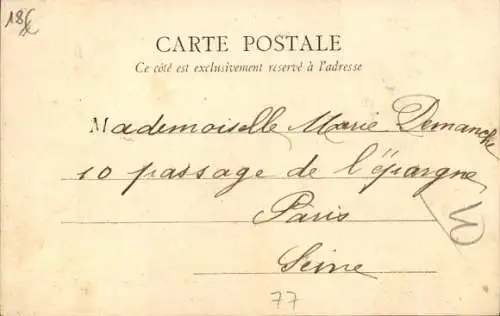 18€
CARTE POSTALE
Ce côté est exclusivement reservé à l'adresse
Mademoiselle Marie Demanche
10 passage de l'épargne
Paris
Seine
77